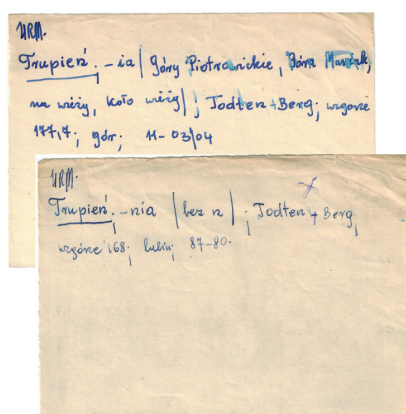 URM.
Trupień; -ia / Góry Piotrowickie, Góra
na wieży, koło wieży/; Todten+Berg; wzgórze
177,7; gór; 11-03/04
URM.
Trupień; -nia /bez n/; Todten + Berg;
wzgórze 168; lubin; 87-80.